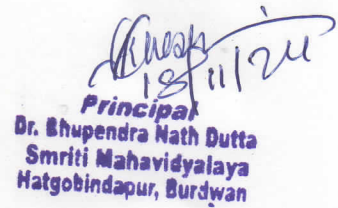 18/11/24
Principal
Dr. Bhupendra Nath Dutta
Smriti Mahavidyalaya
Hatgobindapur, Burdwan